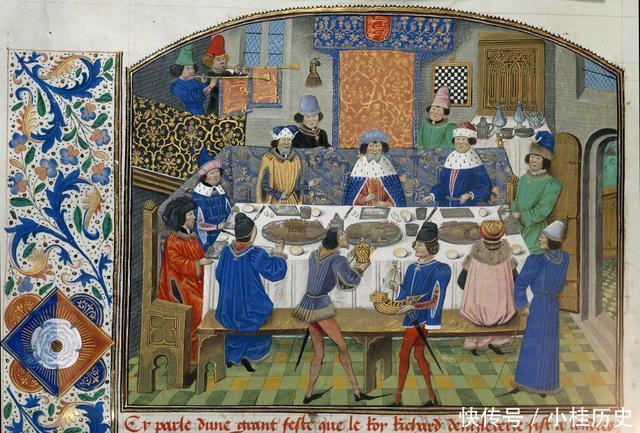 Cy parle dune grant feste que le Roy Richard dangleterre fist a
快传号 / 小桂历史